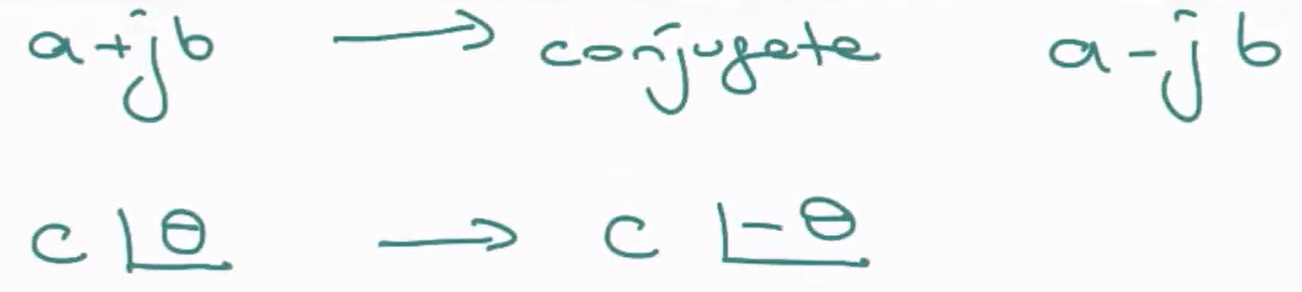 a+jb → conjugate a-jb
c∠θ → c∠-θ